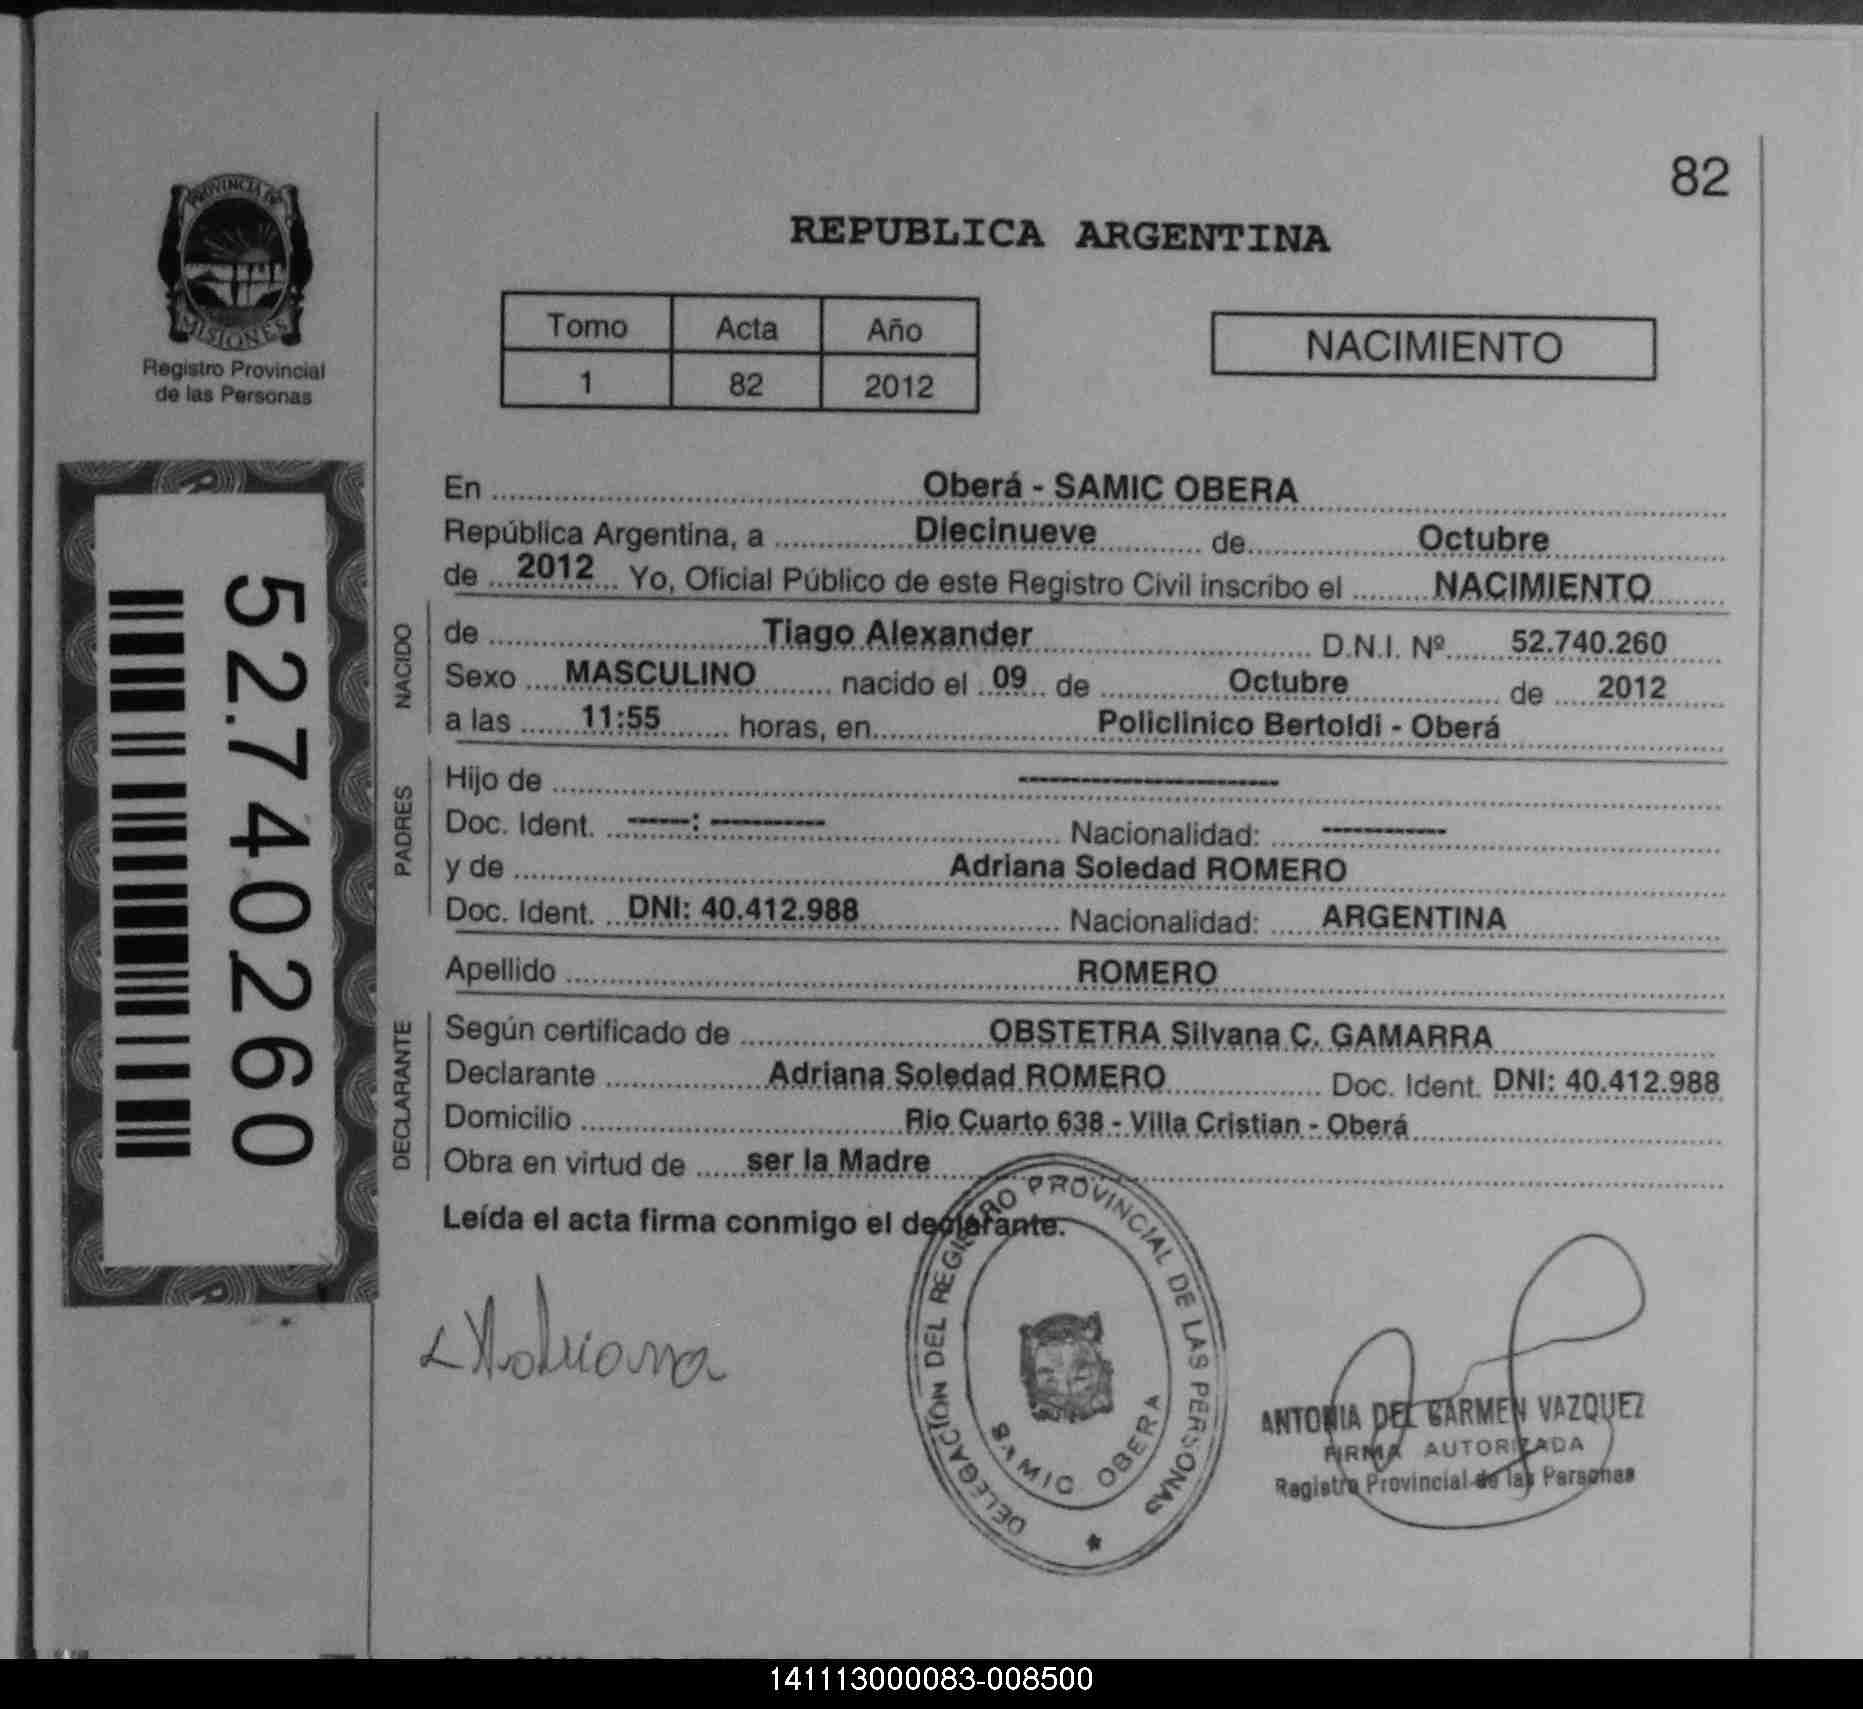 82
REPUBLICA ARGENTINA
PROVINCIA DE
MISIONES
Registro Provincial
de las Personas
Tomo Acta Año
1 82 2012
NACIMIENTO
52.740260
En Oberá - SAMIC OBERA
República Argentina, a Diecinueve de Octubre
de 2012 Yo, Oficial Público de este Registro Civil inscribo el NACIMIENTO
NACIDO
de Tiago Alexander D.N.I. Nº 52.740.260
Sexo MASCULINO nacido el 09 de Octubre de 2012
a las 11:55 horas, en Policlinico Bertoldi - Oberá
PADRES
Hijo de --------------------
Doc. Ident. ------: ---------- Nacionalidad: -----------
y de Adriana Soledad ROMERO
Doc. Ident. DNI: 40.412.988 Nacionalidad: ARGENTINA
Apellido ROMERO
DECLARANTE
Según certificado de OBSTETRA Silvana C. GAMARRA
Declarante Adriana Soledad ROMERO Doc. Ident. DNI: 40.412.988
Domicilio Rio Cuarto 638 - Villa Cristian - Oberá
Obra en virtud de ser la Madre
Leída el acta firma conmigo el declarante.
Adriana
DELEGACION DEL REGISTRO PROVINCIAL DE LAS PERSONAS
SAMIC OBERA
ANTONIA DEL CARMEN VAZQUEZ
FIRMA AUTORIZADA
Registro Provincial de las Personas
141113000083-008500